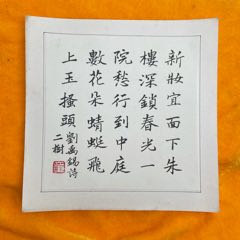 新妝宜面下朱
樓深鎖春光一
院愁行到中庭
數花朵蜻蜓飛
上玉搔頭
劉禹錫詩
二樹